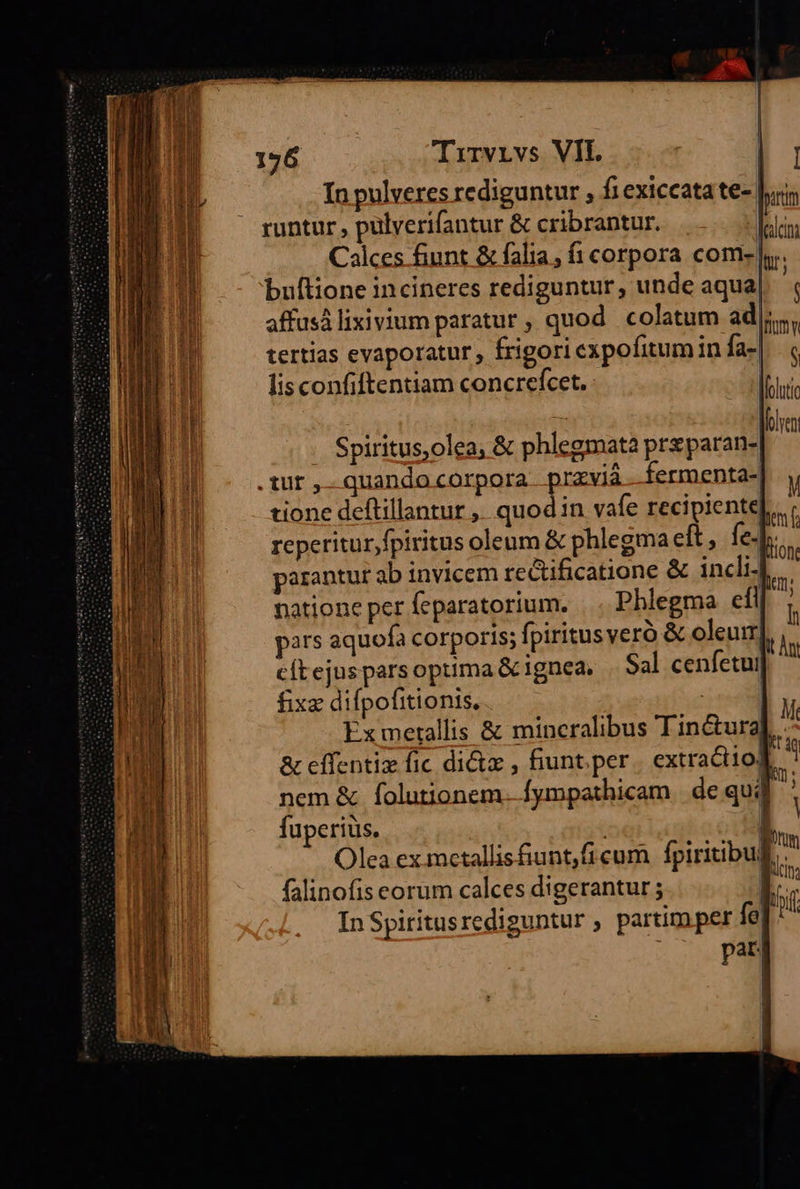 156 TITVLVS VII.
In pulveres rediguntur, ſi exiccata te-
runtur, pulveriſantur & cribrantur.
Calces fiunt & ſalia, ſi corpora com-
buſtione in cineres rediguntur, unde aqua
affusâ lixivium paratur, quod colatum ad
tertias evaporatur, frigori expoſitum in ſa-
lis conſiſtentiam concreſcet.
Spiritus, olea, & phlegmata præparan-
tur, quando corpora præviâ fermenta-
tione deſtillantur, quod in vaſe recipiente
reperitur, ſpiritus oleum & phlegma eſt, ſe-
parantur ab invicem rectificatione & incli-
natione per ſeparatorium. Phlegma eſt
pars aquoſa corporis; ſpiritus verò & oleum
eſt ejus pars optima & ignea. Sal cenſetur
fixæ diſpoſitionis.
Ex metallis & mineralibus Tinctura
& eſſentiæ ſic dictæ, fiunt per extractio-
nem & ſolutionem ſympathicam de quâ
ſuperiùs.
Olea ex metallis fiunt, ſi cum ſpiritibus
ſalinoſis eorum calces digerantur;
In Spiritus rediguntur, partim per ſe
par-